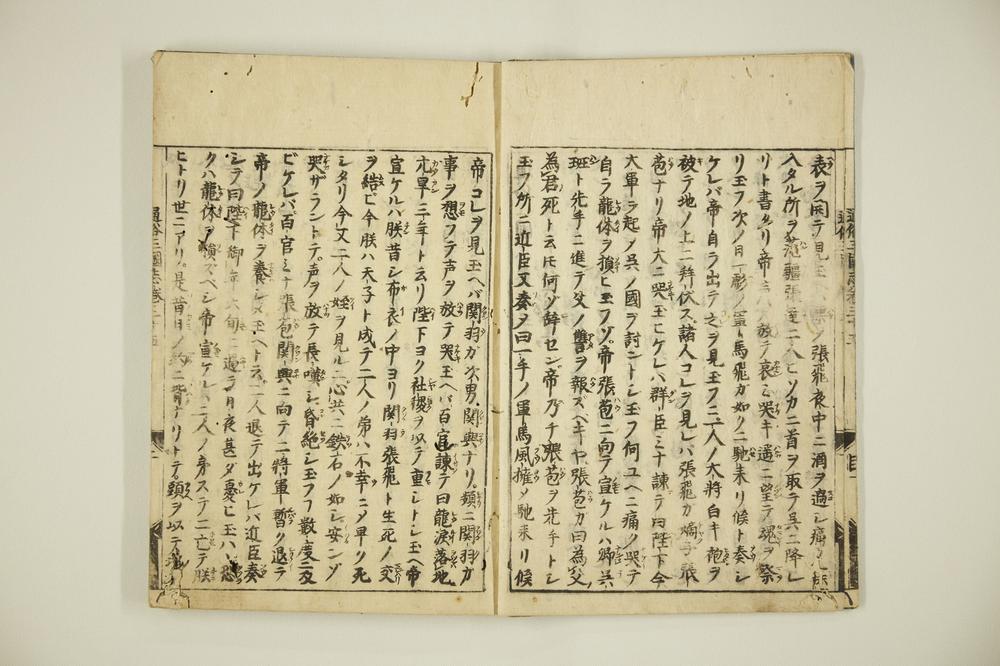 表ヲ開テ見玉
張飛夜中ニ酒ヲ過シ痛
入タル所ヲ范疆張達二人ヒソカニ首ヲ取テ呉ニ降レ
リト書タリ帝
放テ哀ミ哭キ遥ニ望テ魂ヲ祭
リ玉フ次ノ日一彪ノ軍馬飛ガ如クニ馳来リ候ト奏シ
ケレバ帝自ラ出テ之ヲ見玉フニ一人ノ大将白キ袍ヲ
被テ地ノ上ニ拜伏ス諸人コレヲ見レバ張飛ガ嫡子張
苞ナリ帝大ニ哭玉ヒケレバ群臣ミナ諫テ曰陛下今
大軍ヲ起メ呉ノ國ヲ討ントシ玉フ何ユヘニ痛ク哭テ
自ラ龍体ヲ損ヒ玉フゾ帝張苞ニ向テ宣ケルハ卿呉
班ト先手ニ進テ父ノ讐ヲ報ズベキヤ張苞ガ曰為父
為君死ト云𪜈何ゾ辞セン帝乃チ張苞ヲ先手トシ
玉フ所ニ近臣又奏メ曰一手ノ軍馬風ノ擁メ馳来リ候
帝コレヲ見玉ヘバ関羽ガ次男関興ナリ頻ニ関羽ガ
事ヲ想フテ声ヲ放テ哭玉ヘバ百官諫テ曰龍涙落地
亢旱三年ト云リ陛下ヨク社稷ヲ以テ重シトシ玉ヘ帝
宣ケルハ朕昔シ布衣ノ中ヨリ関羽張飛ト生死ノ交
ヲ結ビ今朕ハ天子ト成テ二人ノ弟ハ不幸ニメ早ク死
シタリ今又二人ノ姪ヲ見ル心共ニ鉄石ノ如シ安ンゾ
哭ザラントテ声ヲ放テ長嘆シ昏絶シ玉フ𪜈数度ニ及
ビケレバ百官ミナ張苞関興ニ向テ二将軍暫ク退テ
帝ノ龍体ヲ養ヒタマヘト云二人退テ出ケレバ近臣奏
シテ曰陛下御年六旬ニ過テ日夜甚ダ憂ヒ玉ハヾ恐
クハ龍体ヲ損ズベシ帝宣ケルハ二人ノ弟ステニ亡テ朕
ヒトリ世ニアリ是昔日ノ約ニ背ナリトテ頭ヲ以テ
通俗三國志巻二十五